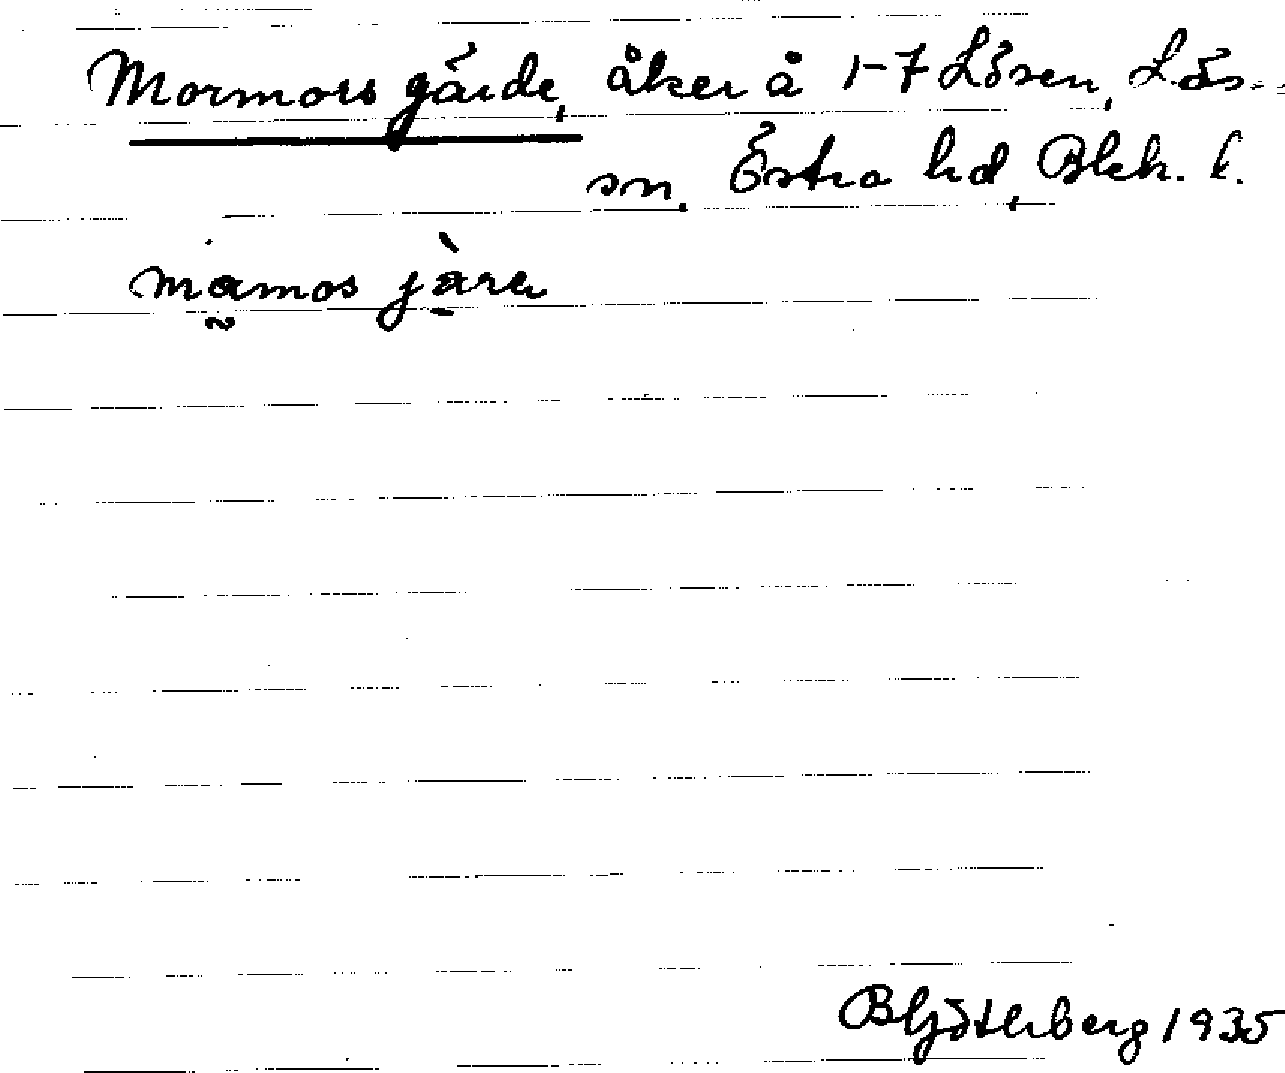 Mormors gärde, åker å 1-7 Lösen, Lös-
sn. Östra hd, Blek. l.
mamos jära
Göthberg 1935